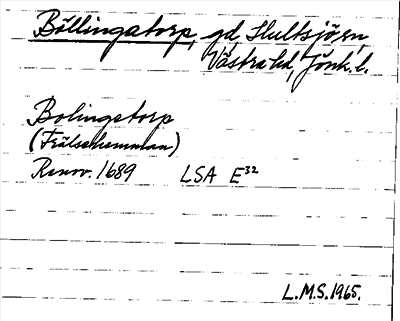 Böllingatorp, gd, Hultsjö sn,
Västra hd, Jönk. l.
Bolingetorp
(Frälsehemman)
Renov. 1689 LSA E³²
L.M.S. 1965.